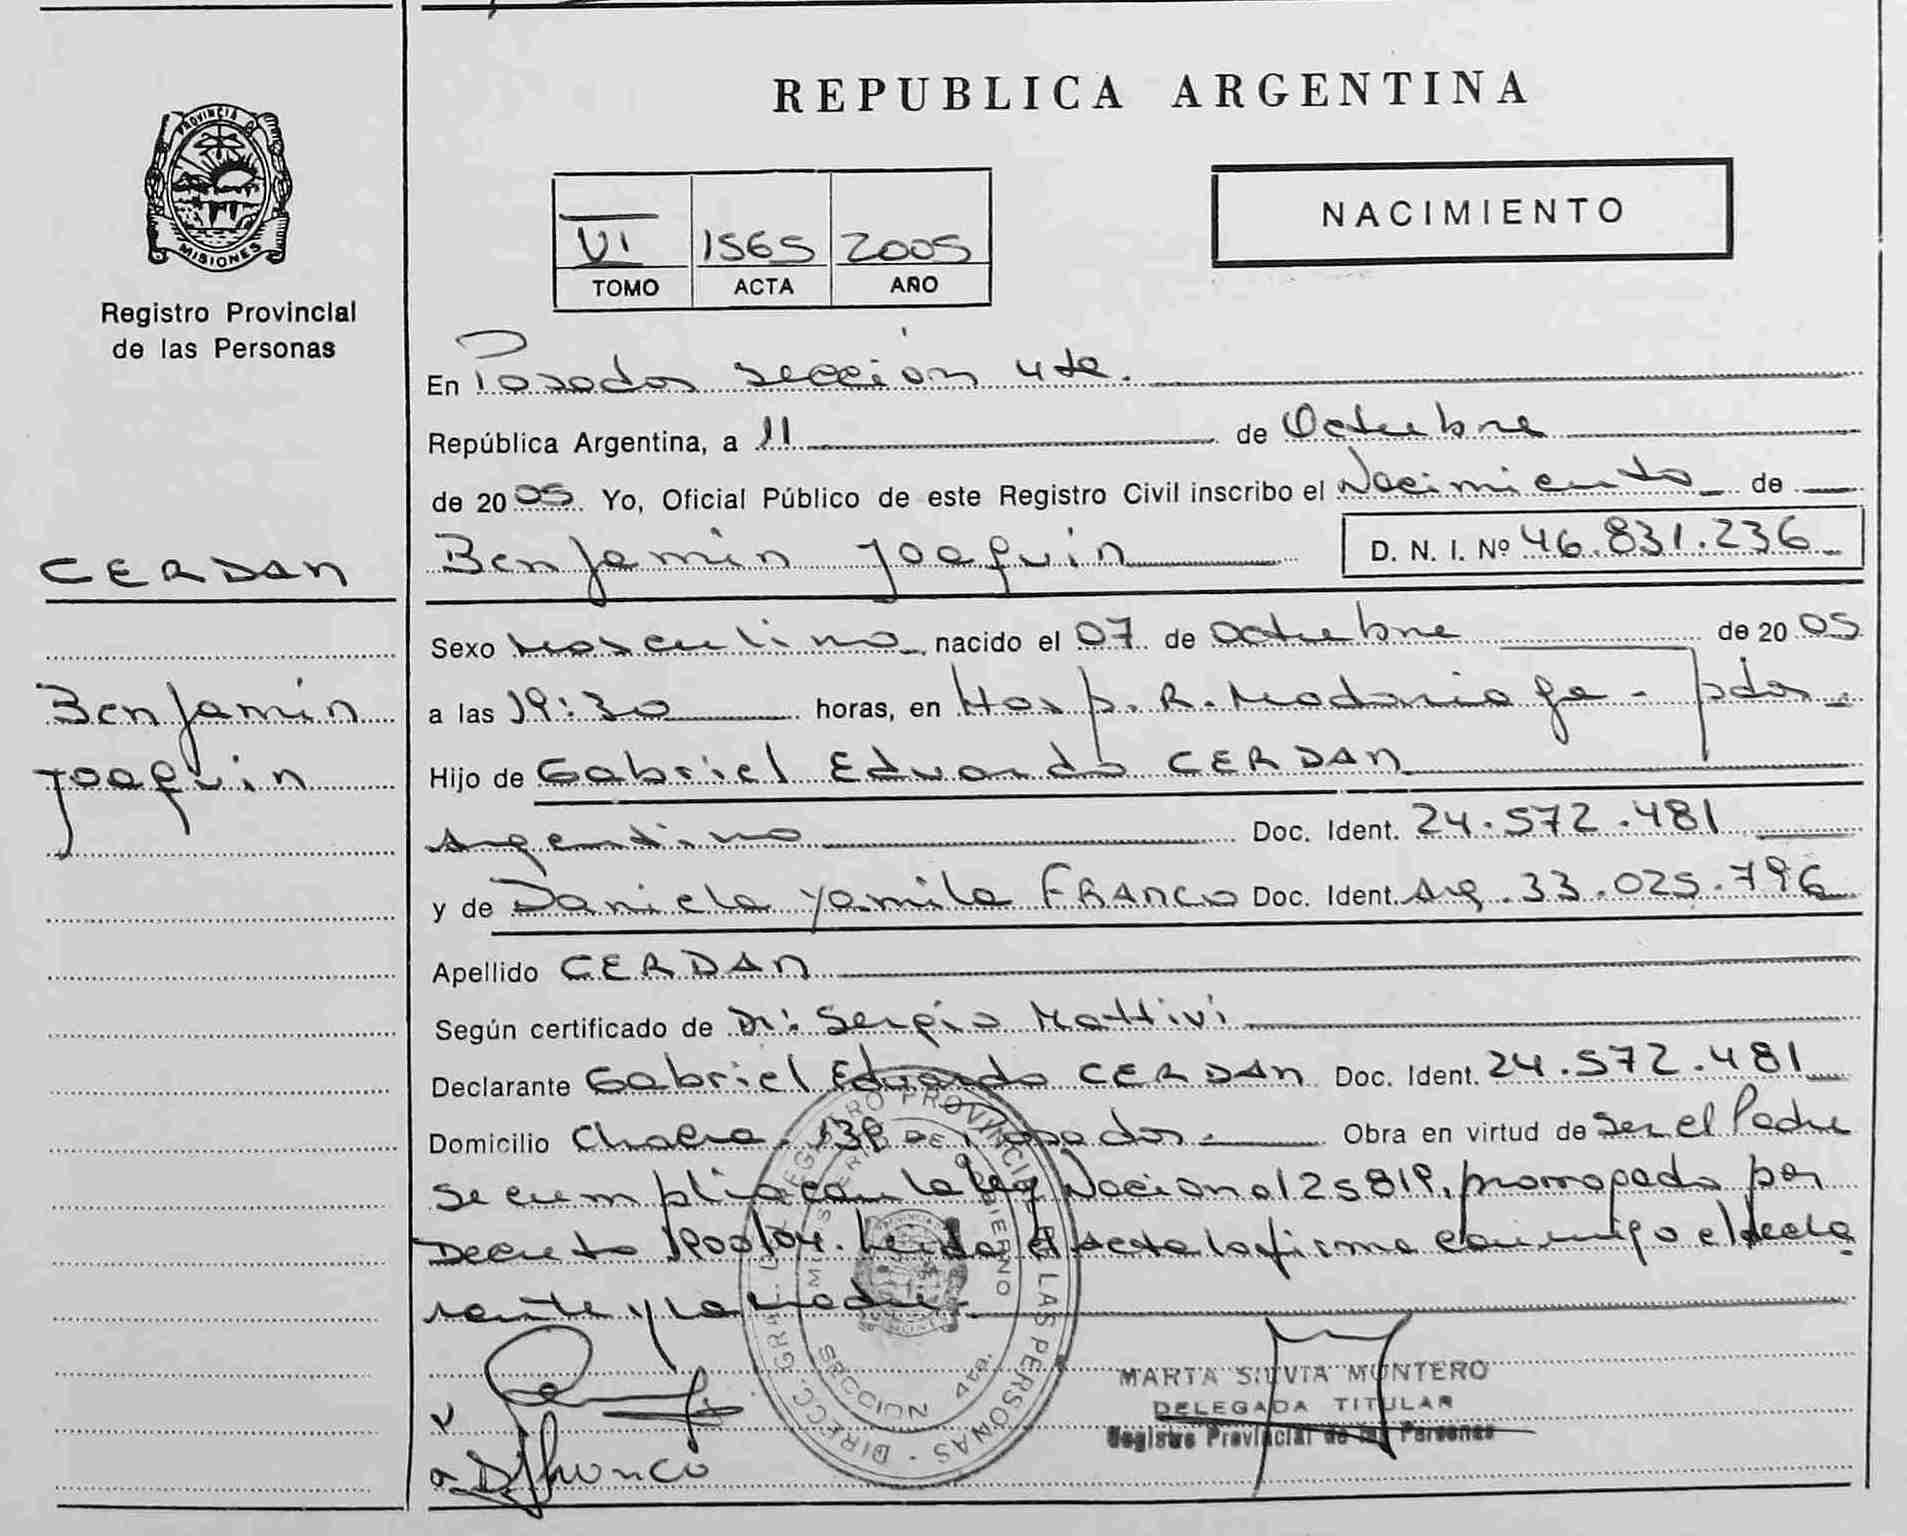 REPUBLICA ARGENTINA
PROVINCIA DE
MISIONES
Registro Provincial
de las Personas
NACIMIENTO
VI 1565 2005
TOMO ACTA AÑO
En Posadas sección 4ta.
República Argentina, a 11 de Octubre
de 2005 Yo, Oficial Público de este Registro Civil inscribo el Nacimiento de
Benjamin Joaquin D. N. I. Nº 46.831.236
CERDAN
Benjamin
Joaquin
Sexo Masculino nacido el 07 de Octubre de 2005
a las 19:30 horas, en Hosp. R. Madariaga - pdas.
Hijo de Gabriel Eduardo CERDAN
Argentino Doc. Ident. 24.572.481
y de Daniela Yamila FRANCO Doc. Ident. Arg. 33.025.796
Apellido CERDAN
Según certificado de Dr. Sergio Mattivi
Declarante Gabriel Eduardo CERDAN Doc. Ident. 24.572.481
Domicilio Chacra 138 de Posadas. Obra en virtud de ser el Padre
se cumplio con la Ley Nacional 25819, prorrogada por
Decreto 1900/04. Leida el Acta la firma conmigo el decla
rante y la madre.
DIRECC. GRAL. REGISTRO PROVINCIAL DE LAS PERSONAS
MINISTERIO DE GOBIERNO
SECCION 4ta.
MARTA SILVIA MONTERO
DELEGADA TITULAR
Registro Provincial de las Personas
DFranco